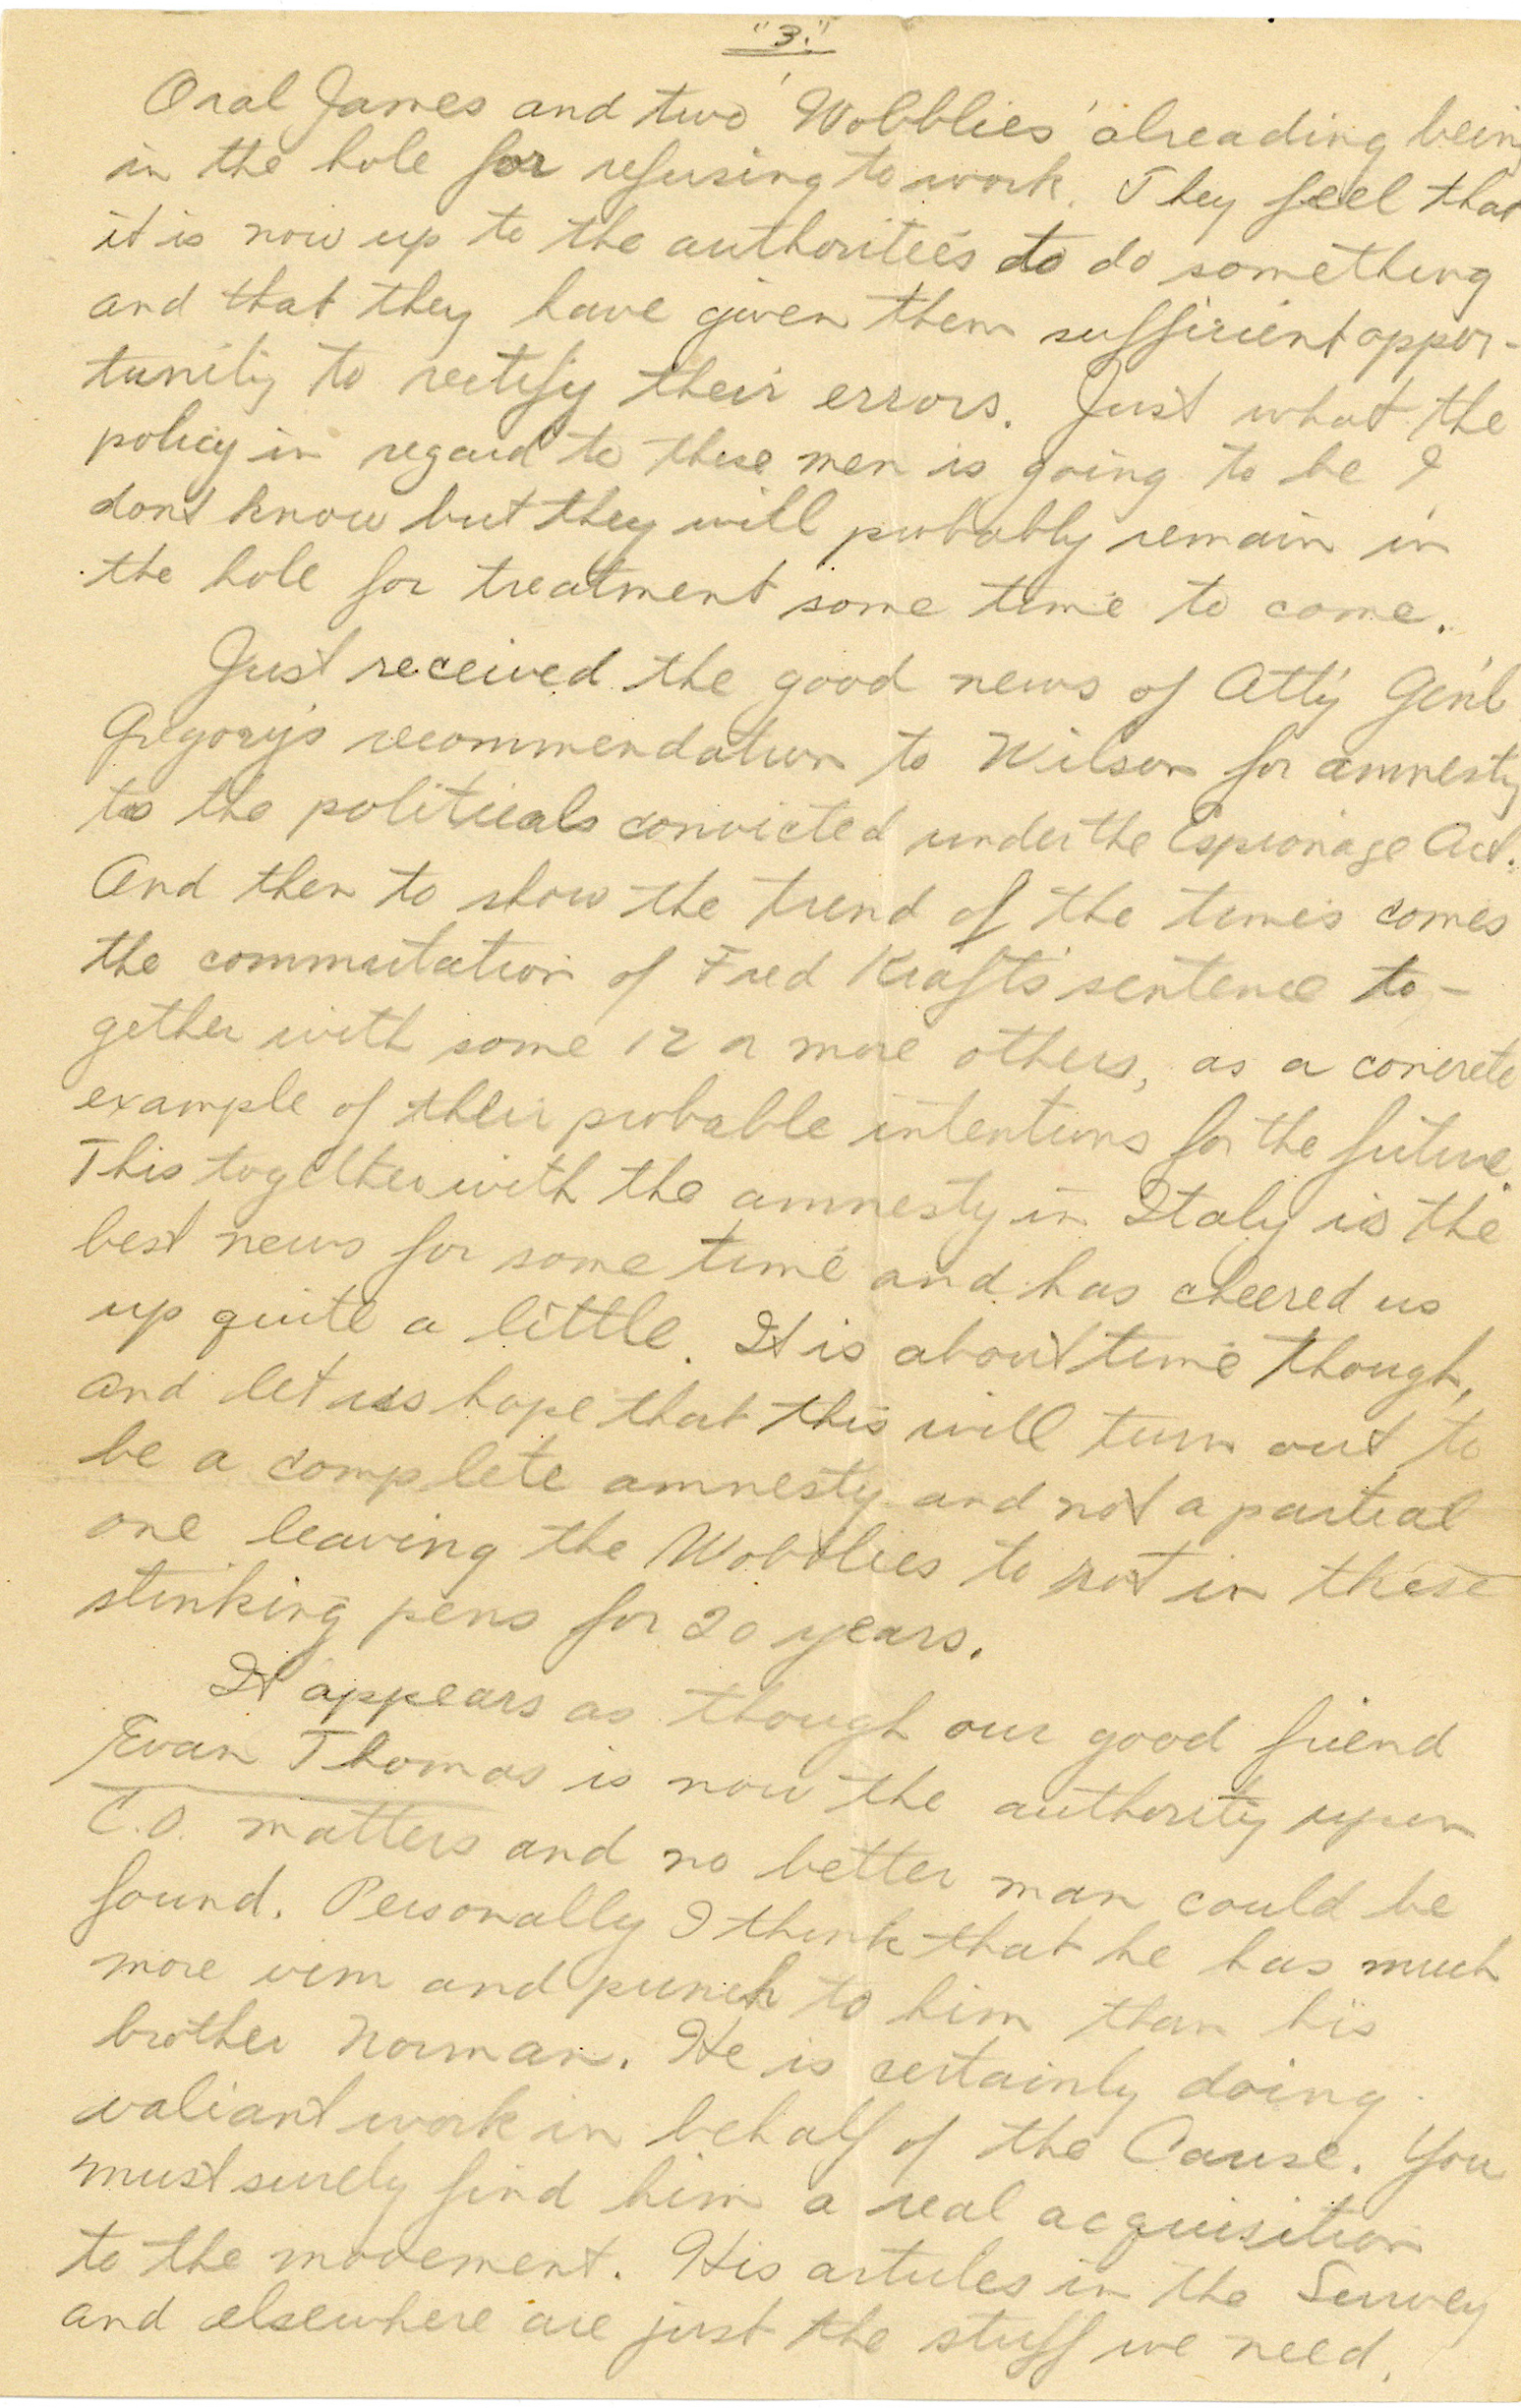 "3."
Oral James and two 'Wobblies' alreading being
in the hole for refusing to work. They feel that
it is now up to the authoritees to do something
and that they have given them sufficient oppor-
tunity to rectify their errors. Just what the
policy in regard to these men is going to be I
dont know but they will probably remain in
the hole for treatment some time to come.
Just received the good news of Att'y Gen'l
Gregory's recommendation to Wilson for amnesty
to the politicals convicted under the Espionage Act.
And then to show the trend of the times comes
the commutation of Fred Kraft's sentence to-
gether with some 12 or more others, as a concrete
example of their probable intentions for the future.
This together with the amnesty in Italy is the
best news for some time and has cheered us
up quite a little. It is about time though,
and let us hope that this will turn out to
be a complete amnesty and not a partial
one leaving the Wobblies to rot in these
stinking pens for 20 years.
It appears as though our good friend
Evan Thomas is now the authority upon
C.O. matters and no better man could be
found. Personally I think that he has much
more vim and punch to him than his
brother Norman. He is certainly doing
valiant work in behalf of the Cause. You
must surely find him a real acquisition
to the movement. His articles in the Survey
and elsewhere are just the stuff we need.